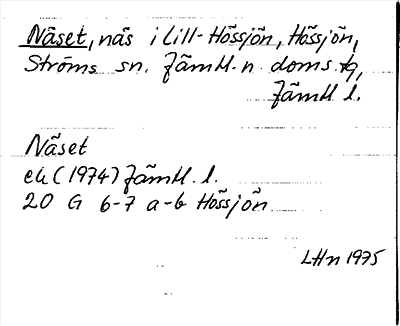 Näset, näs i Lill-Hössjön, Hössjön,
Ströms sn. Jämtl. n. doms.
Jämtl l.
Näset
ek (1974) Jämtl. l.
20 G 6-7 a-b Hössjön
LHn 1975